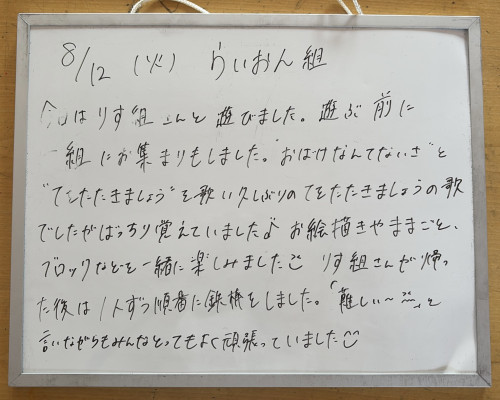 8/12 (火) らいおん組
今日はりす組さんと遊びました。遊ぶ前に
一緒にお集まりもしました。"おばけなんてないさ"と
"てをたたきましょう"を歌い久しぶりのてをたたきましょうの歌
でしたがばっちり覚えていました♪ お絵描きやままごと、
ブロックなどを一緒に楽しみました りす組さんが帰っ
た後は1人ずつ順番に鉄棒をしました。「難しい〜」と
言いながらもみんなとってもよく頑張っていました